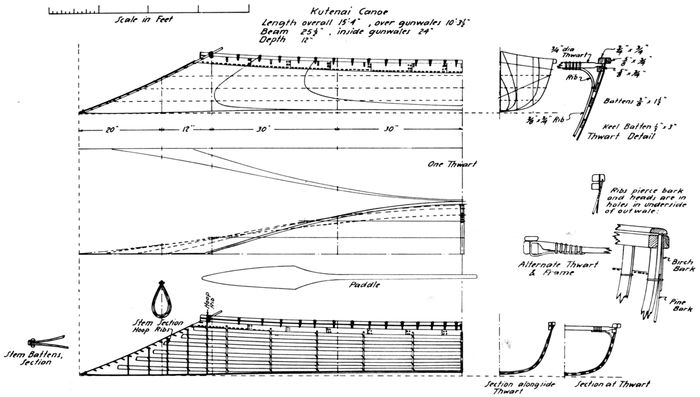 Scale in Feet
Kutenai Canoe
Length overall 15'4", over gunwales 10'3½"
Beam 25½", inside gunwales 24"
Depth 12"
¾" dia
Thwart
Rib
Battens
Rib
Keel Batten
Thwart Detail
20"
12"
30"
30"
One Thwart
Ribs pierce bark
and heads are in
holes in underside
of outwale.
Alternate Thwart
& Frame
Birch
Bark
Pine
Bark
Paddle
Stem Section
Hoop Rib
Hoop
Rib
Stem Battens,
Section
Section alongside
Thwart
Section at Thwart